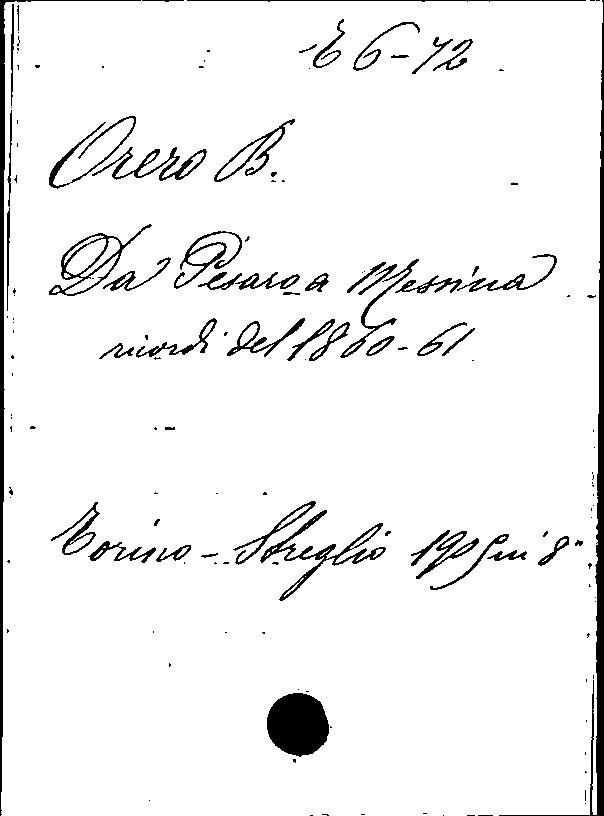 E 6-72
Orero B.
Da Pesaro a Messina
ricordi del 1860-61
Torino - Streglio 1905 in 8°